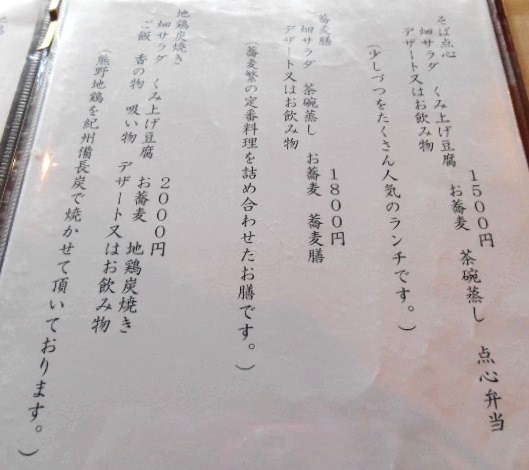 そば点心　１５００円
畑サラダ　くみ上げ豆腐　お蕎麦　茶碗蒸し　点心弁当
デザート又はお飲み物
（少しづつをたくさん人気のランチです。）
蕎麦膳　１８００円
畑サラダ　茶碗蒸し　お蕎麦　蕎麦膳
デザート又はお飲み物
（蕎麦繁の定番料理を詰め合わせたお膳です。）
地鶏炭焼き　２０００円
畑サラダ　くみ上げ豆腐　お蕎麦　地鶏炭焼き
ご飯　香の物　吸い物　デザート又はお飲み物
（熊野地鶏を紀州備長炭で焼かせて頂いております。）